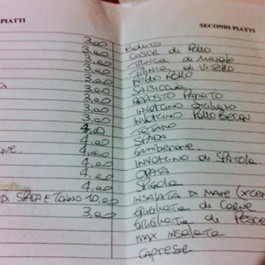 PIATTI
3,00
3,00
3,00
3,00
3,00
3,00
3,00
3,00
3,00
4,00
4,00
4,00
4,00
4,00
4,00
DI SPADA E TONNO 10,00
3,00
SECONDI PIATTI
Coscia di Pollo
di Maiale
di Vitello
Petto Pollo
Salsiccia
Arrosto
Involtino Siciliano
Involtino Pollo Bacon
SPADA
Gamberone
Involtino di Spatola
ORATA
Spigola
INSALATA DI MARE
Grigliata di Carne
Grigliata di Pesce
Max Insalata
Caprese